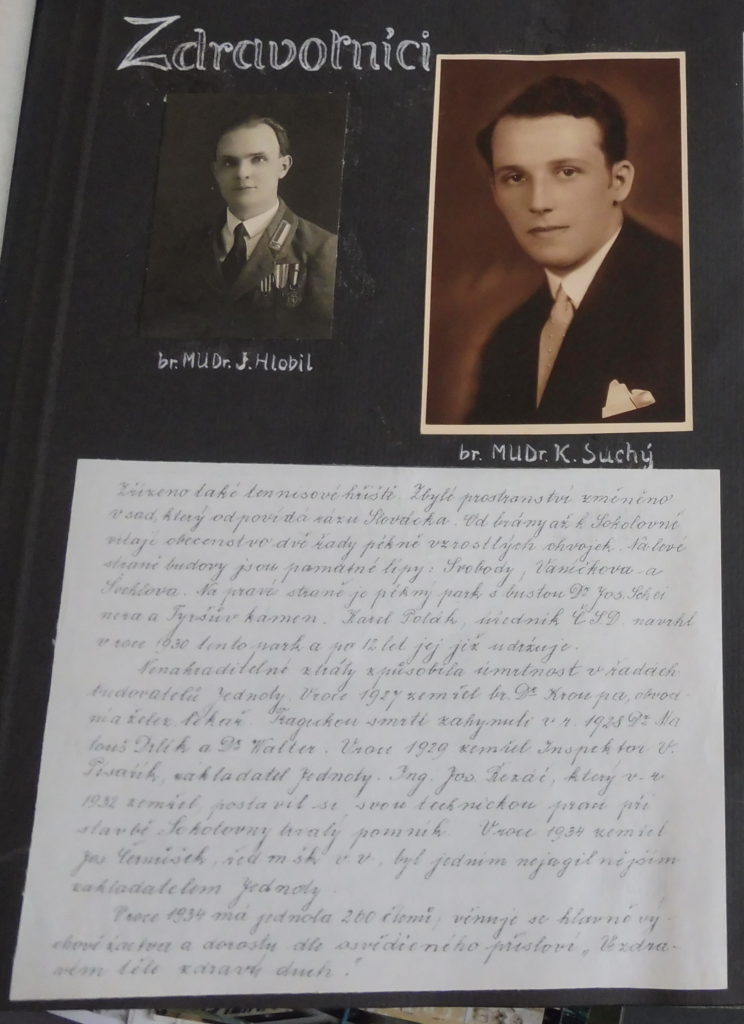 Zdravotníci
br. MUDr. J. Hlobil
br. MUDr. K. Suchý
Zřízeno také tennisové hřiště. Zbylé prostranství změněno
v sad, který odpovídá rázu Slovácka. Od brány až k Sokolovně
vítají obecenstvo dvě řady pěkně vzrostlých chvojek. Na levé
straně budovy jsou památné lípy: Svobody, Vaníčkova a
Na pravé straně je pěkný park s bustou Dr Jos. Schei
nera a Tyršův kámen. Karel Polák, úředník ČSD. navrhl
v roce 1930 tento park a po 12 let jej již udržuje.
Nenahraditelné ztráty způsobila úmrtnost v řadách
budovatelů Jednoty. V roce 1927 zemřel br. Dr Kroupa, obvod
ní a želez. lékař. Tragickou smrtí zahynuli v r. 1928 Dr Ma
touš Drlík a Dr Walter. V roce 1929 zemřel Inspektor V.
Pisařík, zakladatel Jednoty. Ing. Jos. Řezáč, který v r.
1932 zemřel, postavil si svou technickou prací při
stavbě Sokolovny trvalý pomník. V roce 1934 zemřel
Jos. Černíšek, řed. m. šk. v. v., byl jedním nejagilnějším
zakladatelem Jednoty.
V roce 1934 má jednota 260 členů, věnuje se hlavně vý-
chově žactva a dorostu dle osvědčeného přísloví „Ve zdra-
vém těle zdravý duch."